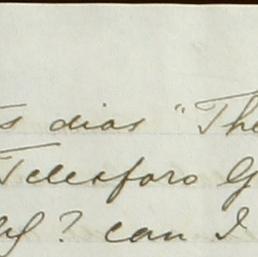 s dias "The
Telesforo G
ly? can I